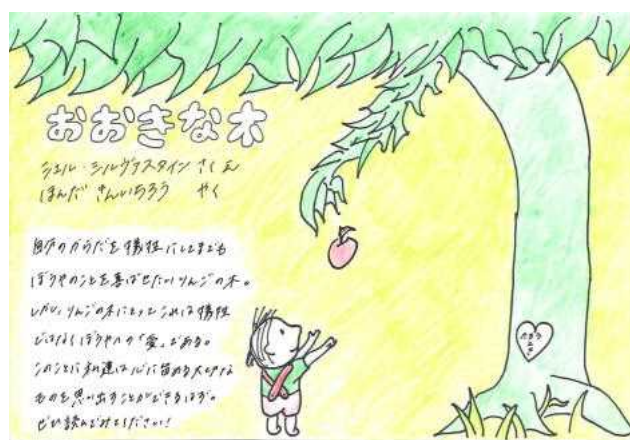 おおきな木
シェル・シルヴァスタイン さく え
ほんだ きんいちろう やく
自分のからだを犠牲にしてまでも
ぼうやのことを喜ばせたいりんごの木。
しかし、りんごの木にとってこれは犠牲
ではなくぼうやへの「愛」である。
このことに私達は心に留める大切な
ものを思い出すことができるはず。
ぜひ読んでみてください!